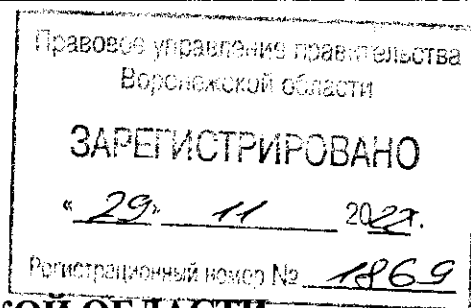 Правовое управление правительства
Воронежской области
ЗАРЕГИСТРИРОВАНО
« 29 » 11 2022 г.
Регистрационный номер № 1869
КОЙ ОБЛАСТИ